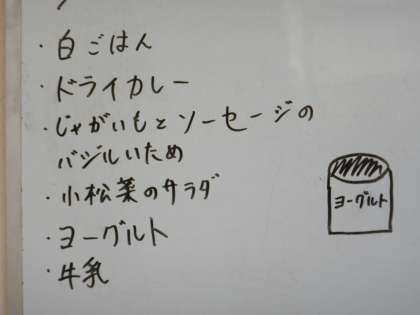 ・白ごはん
・ドライカレー
・じゃがいもとソーセージの
バジルいため
・小松菜のサラダ
・ヨーグルト
・牛乳
ヨーグルト